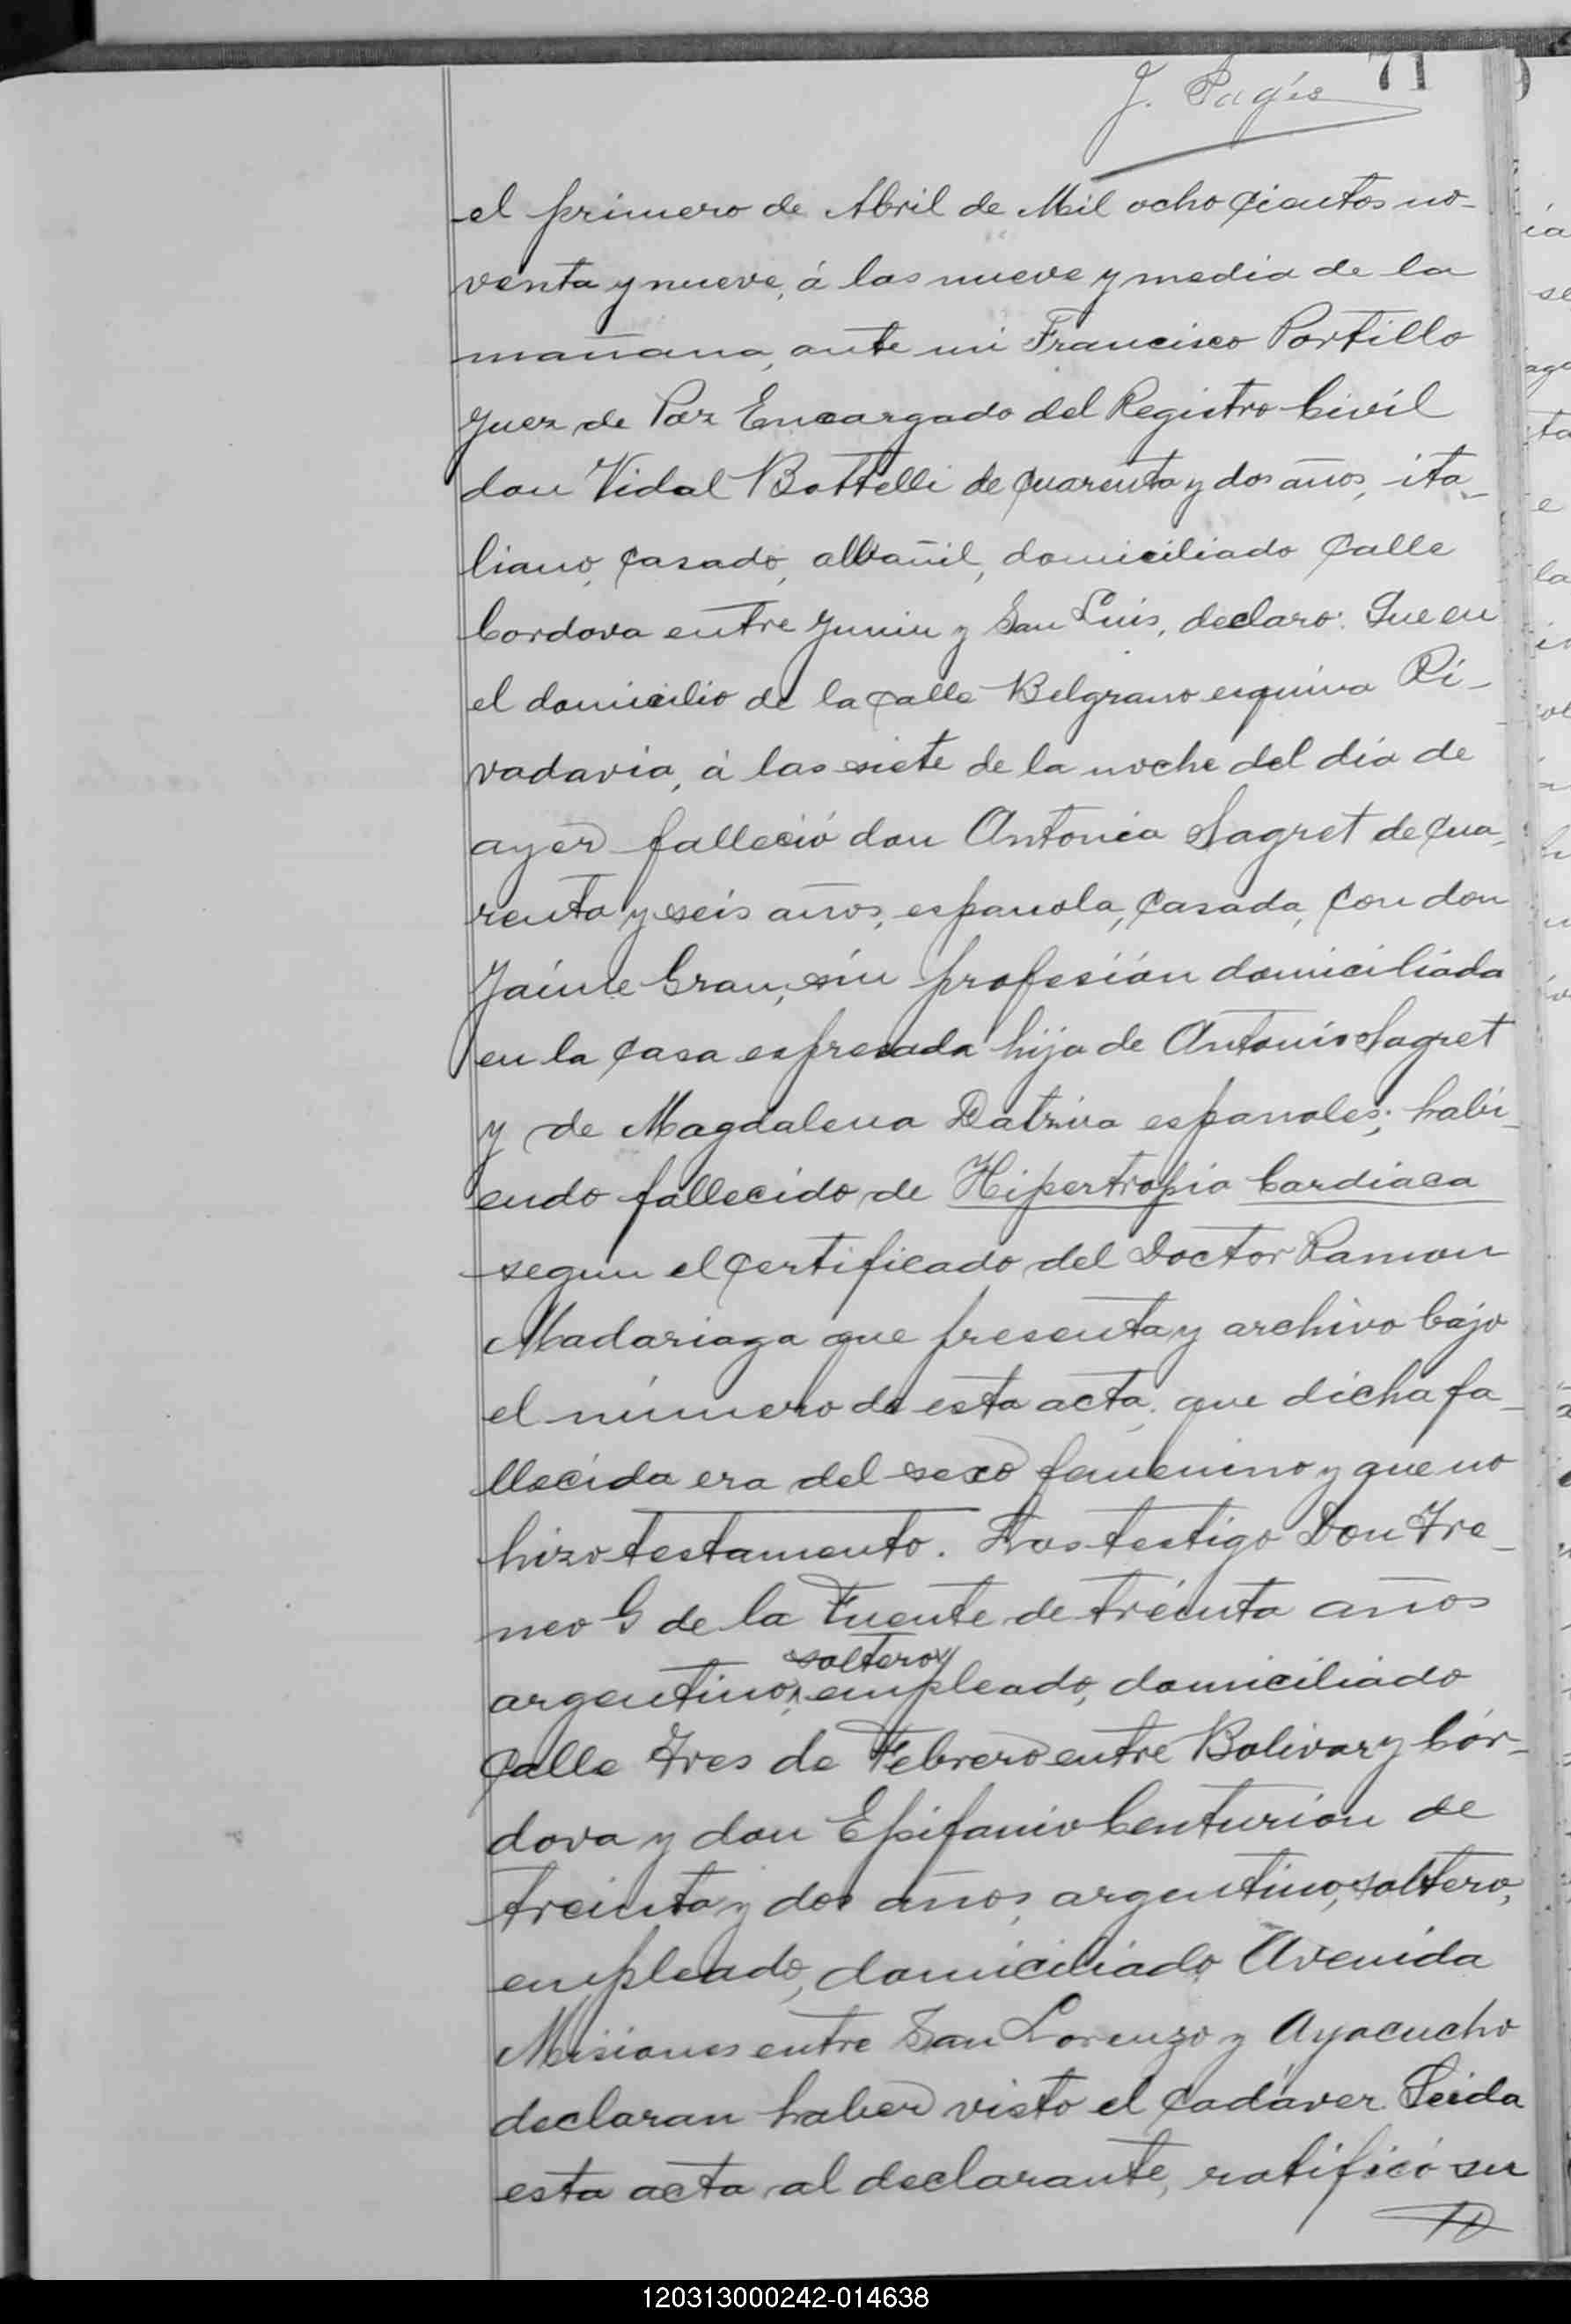 J. Pagés
71
el primero de Abril de Mil ocho cientos no-
venta y nueve, á las nueve y media de la
mañana, ante mi Francisco Portillo
Juez de Paz Encargado del Registro Civil
don Vidal Bottelli de cuarenta y dos años, ita-
liano, casado, albañil, domiciliado calle
Cordova entre Junin y San Luis, declaro: Que en
el domicilio de la calle Belgrano esquina Ri-
vadavia, á las siete de la noche del dia de
ayer falleció don Antonia Sagret de cua-
renta y seis años, espanola, casada, con don
Jaime Grau, sin profesión domiciliada
en la casa espresada hija de Antonio Sagret
y de Magdalena espanoles; habi-
endo fallecido de Hipertropia Cardiaca
segun el certificado del Doctor Ramon
Madariaga que presenta y archivo bajo
el número de esta acta, que dicha fa-
llecida era del sexo femenino y que no
hizo testamento. Los testigo Don Ire-
neo G de la Fuente de treinta años
argentino, soltero, empleado, domiciliado
calle Tres de Febrero entre Bolivar y Cór-
dova y don Epifanio Centurion de
treinta y dos años, argentino, soltero,
empleado, domiciliado Avenida
Misiones entre San Lorenzo y Ayacucho
declaran haber visto el cadáver. Leida
esta acta al declarante, ratificó su
120313000242-014638